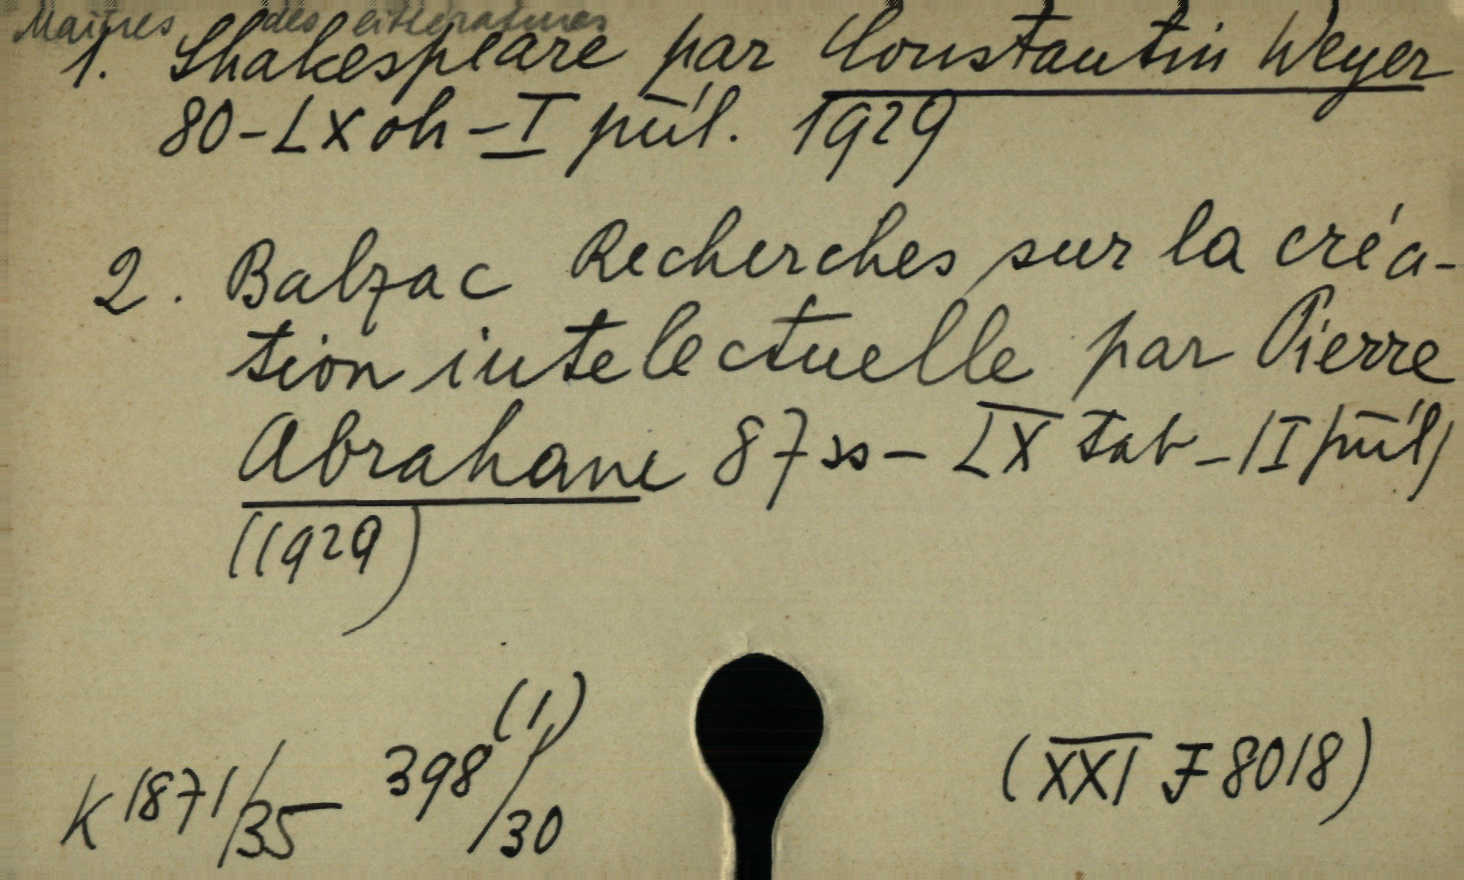 Maîtres des littératures
1. Shakespeare par Constantin Weyer
80-LX oh - I púl. 1929
2. Balzac Recherches sur la créa-
tion intelectuelle par Pierre
Abraham 87 ss - LX tab - (I púl)
(1929)
K 1871/35 398(1)/30 (XXI F 8018)